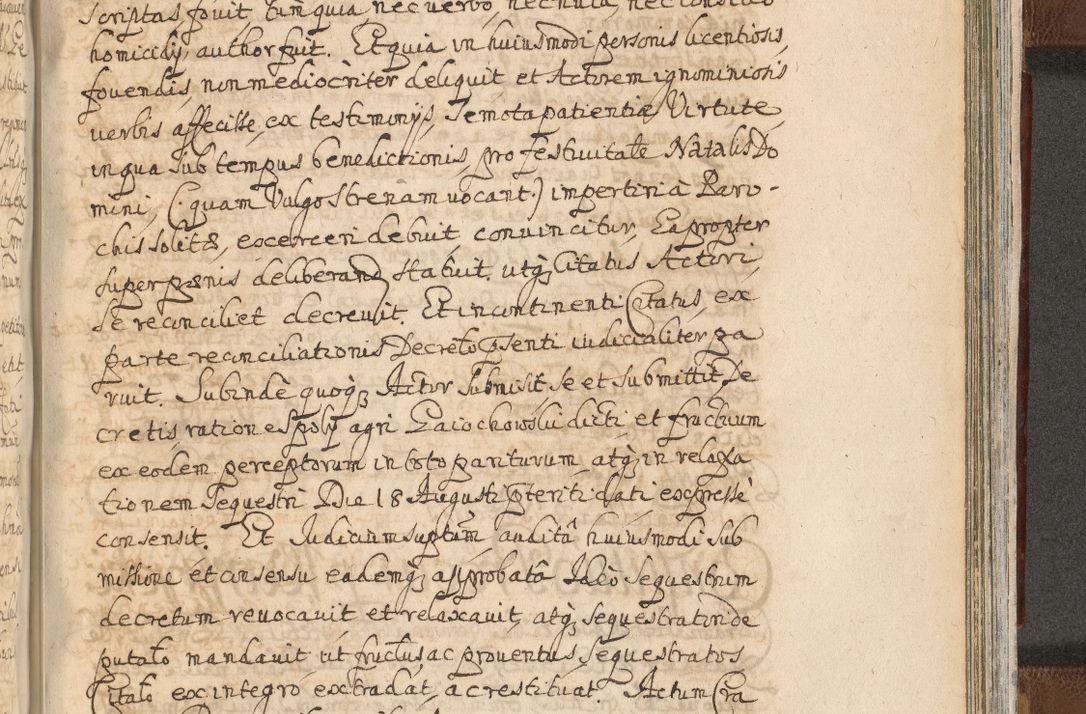 scriptas fovit, tum quia nec verbo, nec nutu nec consilio
homicidij author fuit. Et quia in huiusmodi personis licentiosis
fovendis, non mediocriter deliquit, et Actorem ignominiosis
verbis affecisse, ex testimonijs, remota patientiæ, Virtute
in qua sub tempus benedictionis, pro festivitate Natalis Do
mini, (: quam Vulgo Strenam vocant:) impertiri à Paro-
chis solitæ, excerceri debuit, convincitur, Eapropter
super pænis deliberand statuit, utq; Citatus Actori,
se reconciliet decrevit. Et incontinenti Citatus, ex
parte reconciliationis Decreto pñsenti iudicialiter pa
ruit. Subinde quoq; Actor submisit se et submittit De
cretis ratione spolij agri Gaiochowski dicti et fructuum
ex eodem perceptorum in toto pariturum, atq; in relaxa
tionem sequestri Die 18 Augusti pteriti dati expresse
consensit. Et Judicium suptum, auditâ huiusmodi sub
missione et consensu eademq; approbatâ Ideo sequestrum
decretum revocavit et relaxavit, atq; sequestratori de
putato mandavit ut fructus, ac proventus, sequestratos
Citato ex integro extradat, ac restituat. Actum Cra